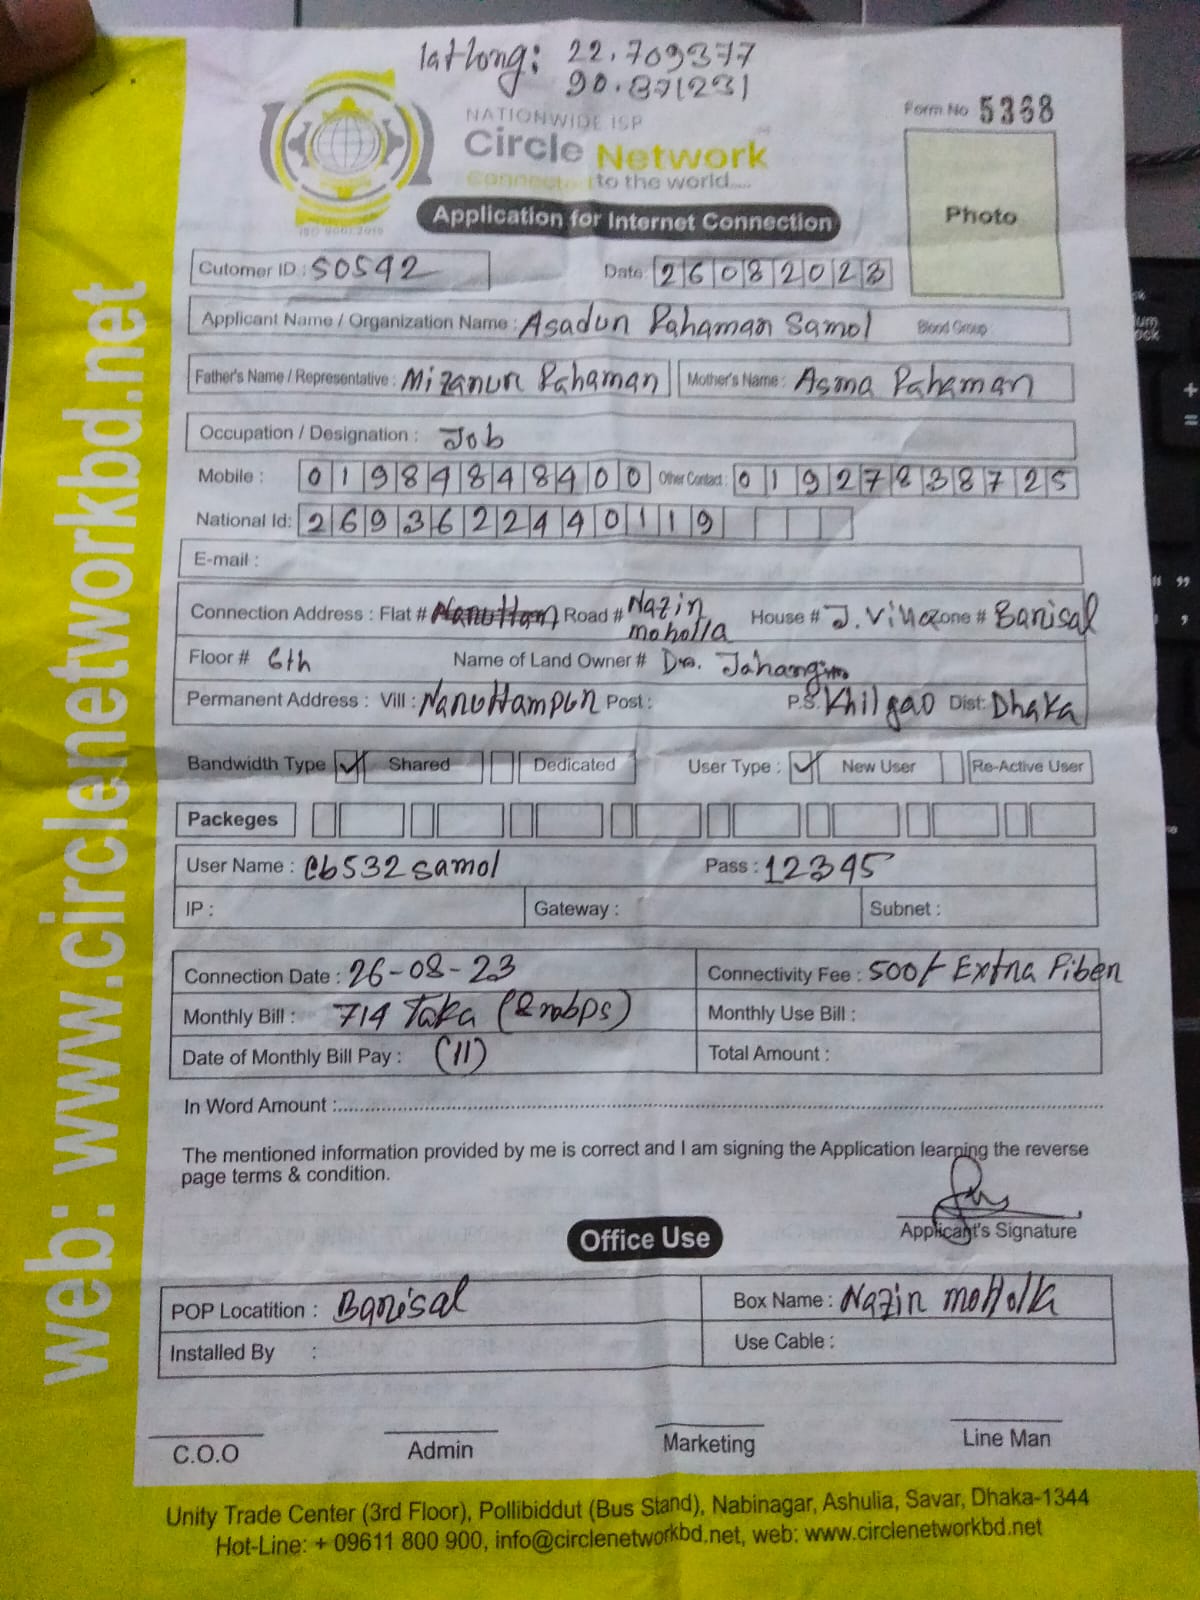 latlong: 22.709377
90.371231
NATIONWIDE ISP
Circle Network
Connected to the world....
ISO 9001:2015
Form No 5368
Photo
Application for Internet Connection
Cutomer ID : 50592 Date: 26082023
Applicant Name / Organization Name : Asadun Rahaman Samol Blood Group
Father's Name / Representative : Mizanur Rahaman Mother's Name : Asma Rahaman
Occupation / Designation : Job
Mobile : 01984848400 Other Contact : 01927838725
National Id: 2693622440119
E-mail :
Connection Address : Flat # Road # Nazir moholla House # J. Villa Zone # Barisal
Floor # 6th Name of Land Owner # Dr. Jahangir
Permanent Address : Vill : Post : P.S. Khilgao Dist: Dhaka
Bandwidth Type ✓ Shared Dedicated User Type : ✓ New User Re-Active User
Packeges
User Name : cb532samol Pass : 12345
IP : Gateway : Subnet :
Connection Date : 26-08-23 Connectivity Fee : 500/- Extra Fiber
Monthly Bill : 714 Taka Monthly Use Bill :
Date of Monthly Bill Pay : (11) Total Amount :
In Word Amount :
The mentioned information provided by me is correct and I am signing the Application learning the reverse
page terms & condition.
Applicant's Signature
Office Use
POP Locatition : Barisal Box Name : Nazir moholla
Installed By : Use Cable :
C.O.O Admin Marketing Line Man
Unity Trade Center (3rd Floor), Pollibiddut (Bus Stand), Nabinagar, Ashulia, Savar, Dhaka-1344
Hot-Line: + 09611 800 900, info@circlenetworkbd.net, web: www.circlenetworkbd.net
web: www.circlenetworkbd.net